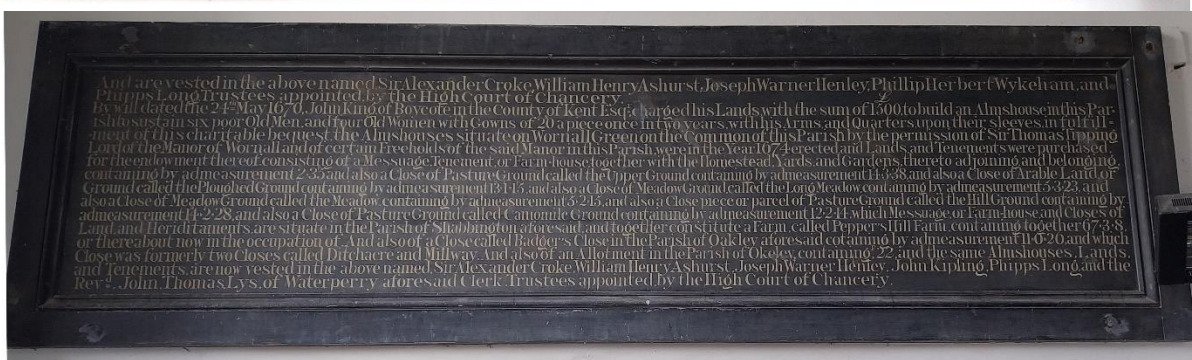 And are vested in the above named, Sir Alexander Croke, William Henry Ashurst, Joseph Warner Henley, Phillip Herbert Wykeham, and
Phipps Long Trustees appointed by the High Court of Chancery.
By will dated the 24th May 167 , John King of Boycote in the County of Kent Esqr. charged his Lands with the sum of £1300, to build an Almshouse in this Par-
ish to sustain six poor Old Men, and four Old Women with Gowns of 20 a piece once in two years, with his Arms, and Quarters upon their sleeves, in full fill-
ment of this charitable bequest the Almshouses situate on Wornall Green in the Common of this Parish by the permission of Sir Thomas Tipping
Lord of the Manor of Wornall and of certain Freeholds of the said Manor in this Parish, were in the Year 1674 erected and Lands, and Tenements were purchased,
for the endowment thereof, consisting of a Messuage, Tenement, or Farm-house, together with the Homestead, Yards, and Gardens, thereto adjoining and belonging,
containing by admeasurement 2·3·35 and also a Close of Pasture Ground called the Upper Ground containing by admeasurement 14·3·38, and also a Close of Arable Land, or
Ground called the Ploughed Ground containing by admeasurement 13·1·15, and also a Close of Meadow Ground called the Long Meadow containing by admeasurement 5·3·23, and
also a Close of Meadow Ground called the Meadow, containing by admeasurement 3·2·13, and also a Close piece or parcel of Pasture Ground called the Hill Ground containing by
admeasurement 14·2·28, and also a Close of Pasture Ground called Camomile Ground containing by admeasurement 12·2·14 which Messuage or Farm-house and Closes of
Land, and Heriditaments, are situate in the Parish of Shabbington aforesaid, and together constitute a Farm, called Pepper's Hill Farm, containing together 67·3·8,
or thereabout now in the occupation of . And also of a Close called Badger's Close in the Parish of Oakley aforesaid cotaining by admeasurement 11·0·20, and which
Close was formerly two Closes called Ditchacre and Millway. And also of an Allotment in the Parish of Okeley, containing 22, and the same Almshouses, Lands,
and Tenements, are now vested in the above named, Sir Alexander Croke, William Henry Ashurst, Joseph Warner Henley, John Kipling, Phipps Long, and the
Revd. John Thomas Lys, of Waterperry aforesaid Clerk Trustees appointed by the High Court of Chancery.